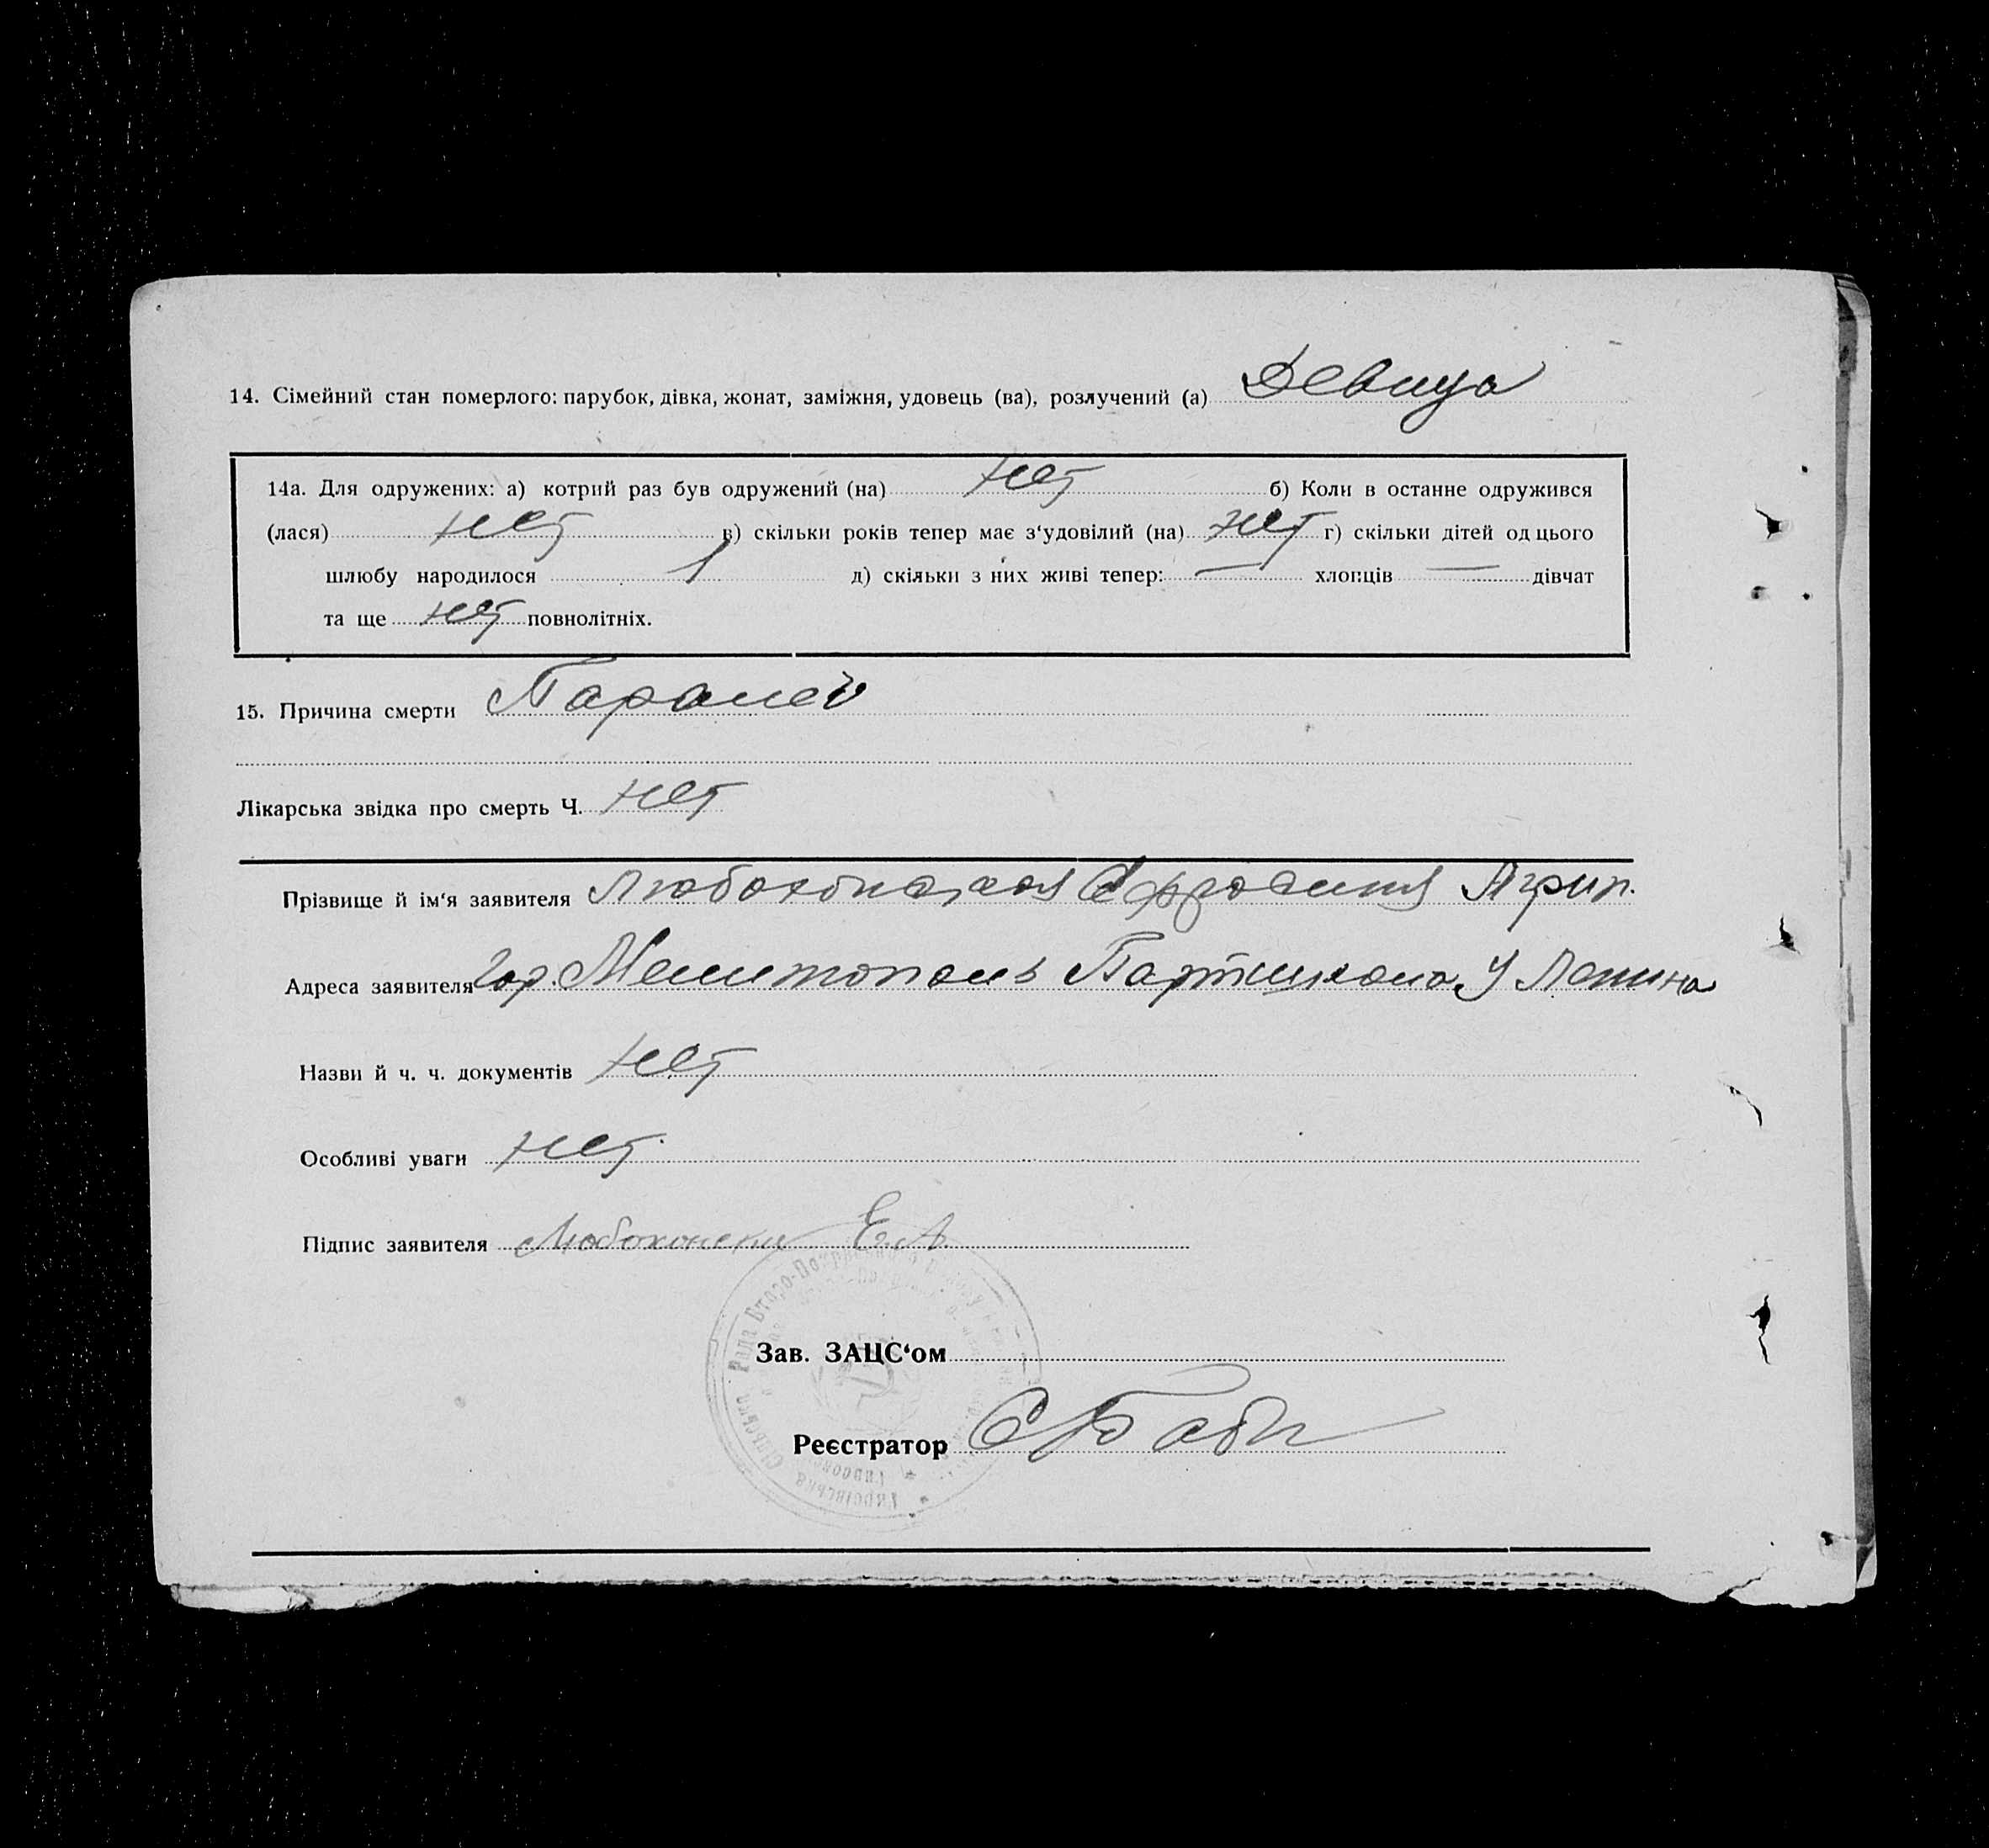 14. Сімейний стан померлого: парубок, дівка, жонат, заміжня, удовець (ва), розлучений (а) Девица
14а. Для одружених: а) котрий раз був одружений (на) нет б) Коли в останнє одружився
(лася) нет в) скільки років тепер має з‘удовілий (на) нет г) скільки дітей од цього
шлюбу народилося д) скільки з них живі тепер: — хлопців — дівчат
та ще нет повнолітніх.
15. Причина смерти
Лікарська звідка про смерть Ч. нет
Прізвище й ім‘я заявителя Ефросиния
Адреса заявителя Гор. Мелитополь У Ленина
Назви й ч. ч. документів нет
Особливі уваги нет
Підпис заявителя Е.А.
Зав. ЗАЦС‘ом
Реєстратор
Сільська Рада Второ-